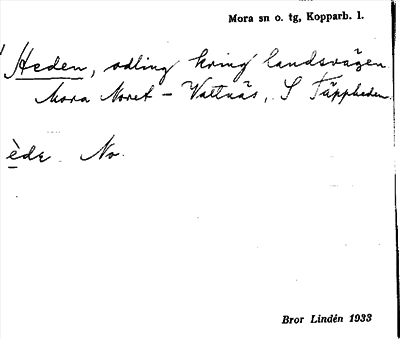 Mora sn o. tg, Kopparb. l.
Heden, odling kring landsvägen
Mora Noret – Vattnäs, S Täppheden.
ède No.
Bror Lindén 1933